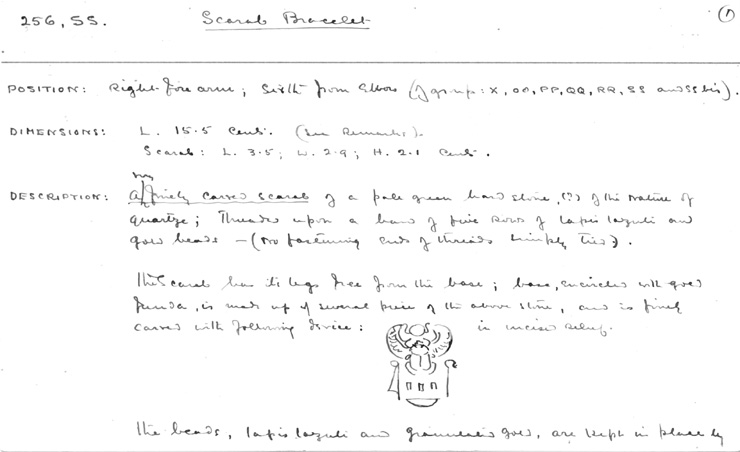 256, SS. Scarab Bracelet. 1
POSITION: Right-fore arm; Sixth from Elbow (of group: X, OO, PP, QQ, RR, SS and SS bis).
DIMENSIONS: L. 15.5 cents. (See Remarks).
Scarab: L. 3.5; W. 2.9; H. 2.1 cents.
DESCRIPTION: A very finely carved scarab of a pale green hard stone, (?) of the nature of
quartz; Threaded upon a band of five rows of lapis lazuli and
gold beads – (No fastening ends of threads simply tied).
The Scarab has its legs free from the base; base, encircled with gold
funda, is made up of several pieces of the above stone, and is finely
carved with following device: in incised relief.
The beads, lapis lazuli and granulated gold, are kept in place by